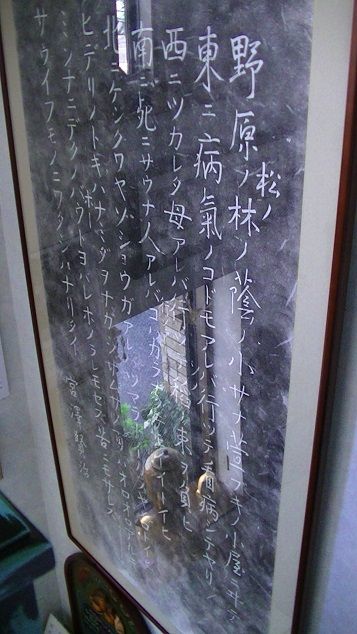 野原ノ松ノ林ノ蔭ノ小サナ萱ブキノ小屋ニヰテ
東ニ病氣ノコドモアレバ行ッテ看病シテヤリ
西ニツカレタ母アレバ行ッテソノ稲ノ束ヲ負ヒ
南ニ死ニサウナ人アレバ行ッテコハガラナクテモイヽトイヒ
北ニケンクヮヤソショウガアレバツマラナイカラヤメロトイヒ
ヒデリノトキハナミダヲナガシサムサノナツハオロオロアルキ
ミンナニデクノボートヨバレホメラレモセズ苦ニモサレズ
サウイフモノニワタシハナリタイ 宮澤賢治